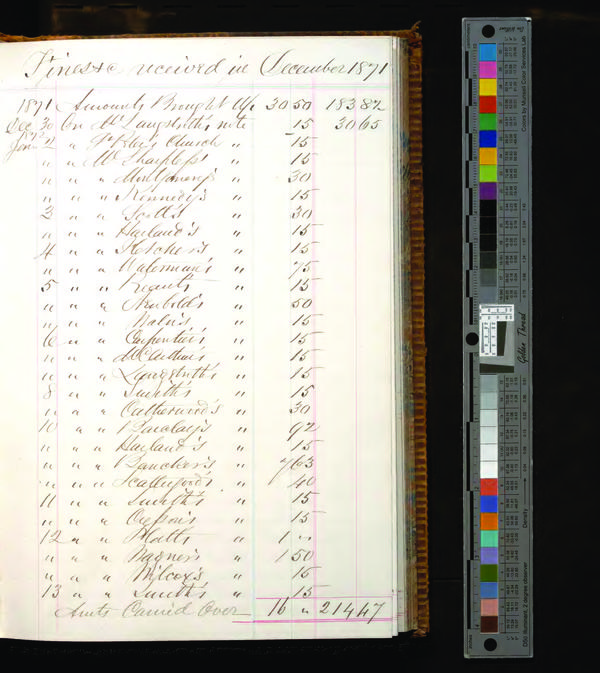 Fines &c received in December 1871
1871 Amounts Brought 30 50 183 82
Dec 30 On Mc Langstroth's note 15 30 65
Jany 2 " St Church " 15
" " Mc Sharpless' " 15
" " " Montgomery's " 30
" " " Kennedy's " 15
3 " " Scott's " 30
" " " Harland's " 15
4 " " " 15
" " " Waterman's " 75
5 " " " 15
" " " Newbold's 50
" " " Waln's " 15
6 " " Carpenter's " 15
" " " McArthur's " 15
" " " Langstroth's " 15
8 " " Smith's " 15
" " " Catherwood's " 30
10 " " Barclay's " 92
" " " Harland's " 15
" " " Bancker's " 7 63
" " " Scattergood's " 40
11 " " Smith's " 15
" " " Cresson's " 15
12 " " Platt's " 1 "
" " " Wagner's " 1 50
" " " Wilcox's " 15
13 " " Smith's " 15
Amts Carried Over 16 " 214 47
Golden Thread